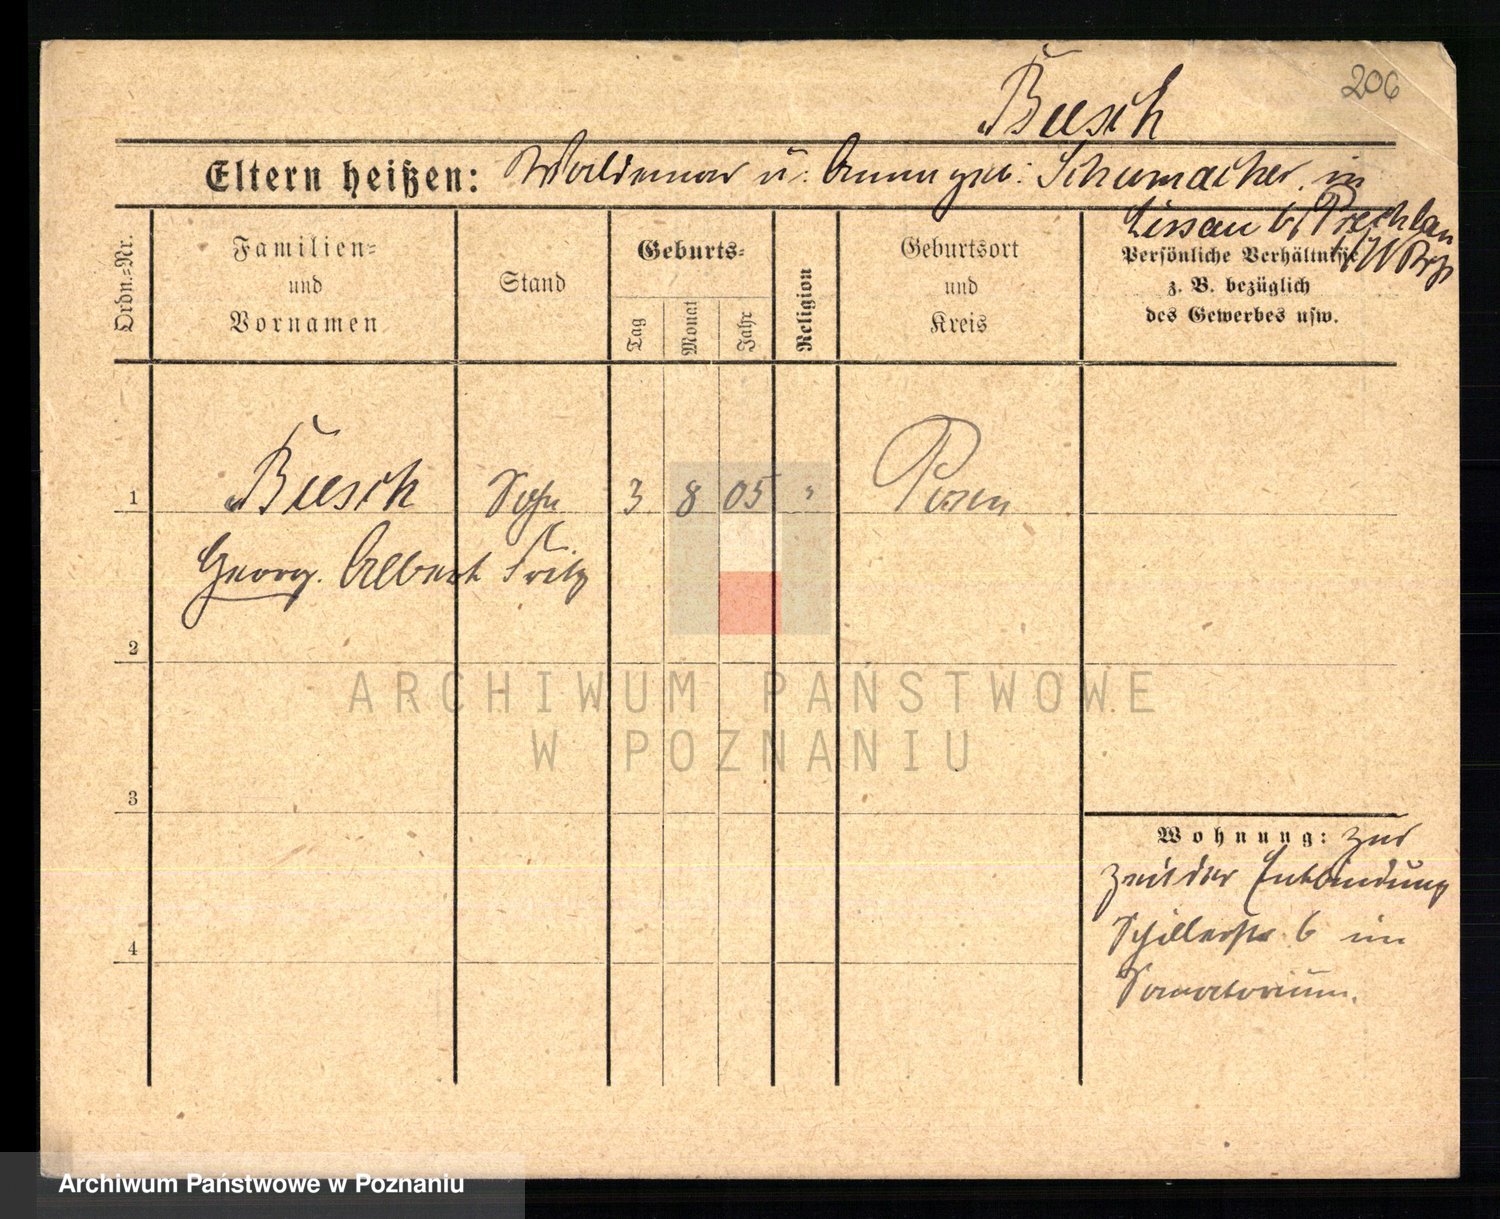 206
Busch
Eltern heißen: Waldemar u. Anna geb. Schumacher, in
Lissau b/ Prechlau
i/W Prß
Ordn.=Nr.
Familien=
und
Vornamen
Stand
Geburts=
Tag
Monat
Jahr
Religion
Geburtsort
und
Kreis
Persönliche Verhältnisse
z. B. bezüglich
des Gewerbes usw.
1 Busch Sohn 3 8 05 " Posen
Georg Albert Fritz
2
ARCHIWUM PAŃSTWOWE
W POZNANIU
3
Wohnung: zur
Zeit der Entbindung
Schillerstr 6 im
4
Sanatorium.
Archiwum Państwowe w Poznaniu